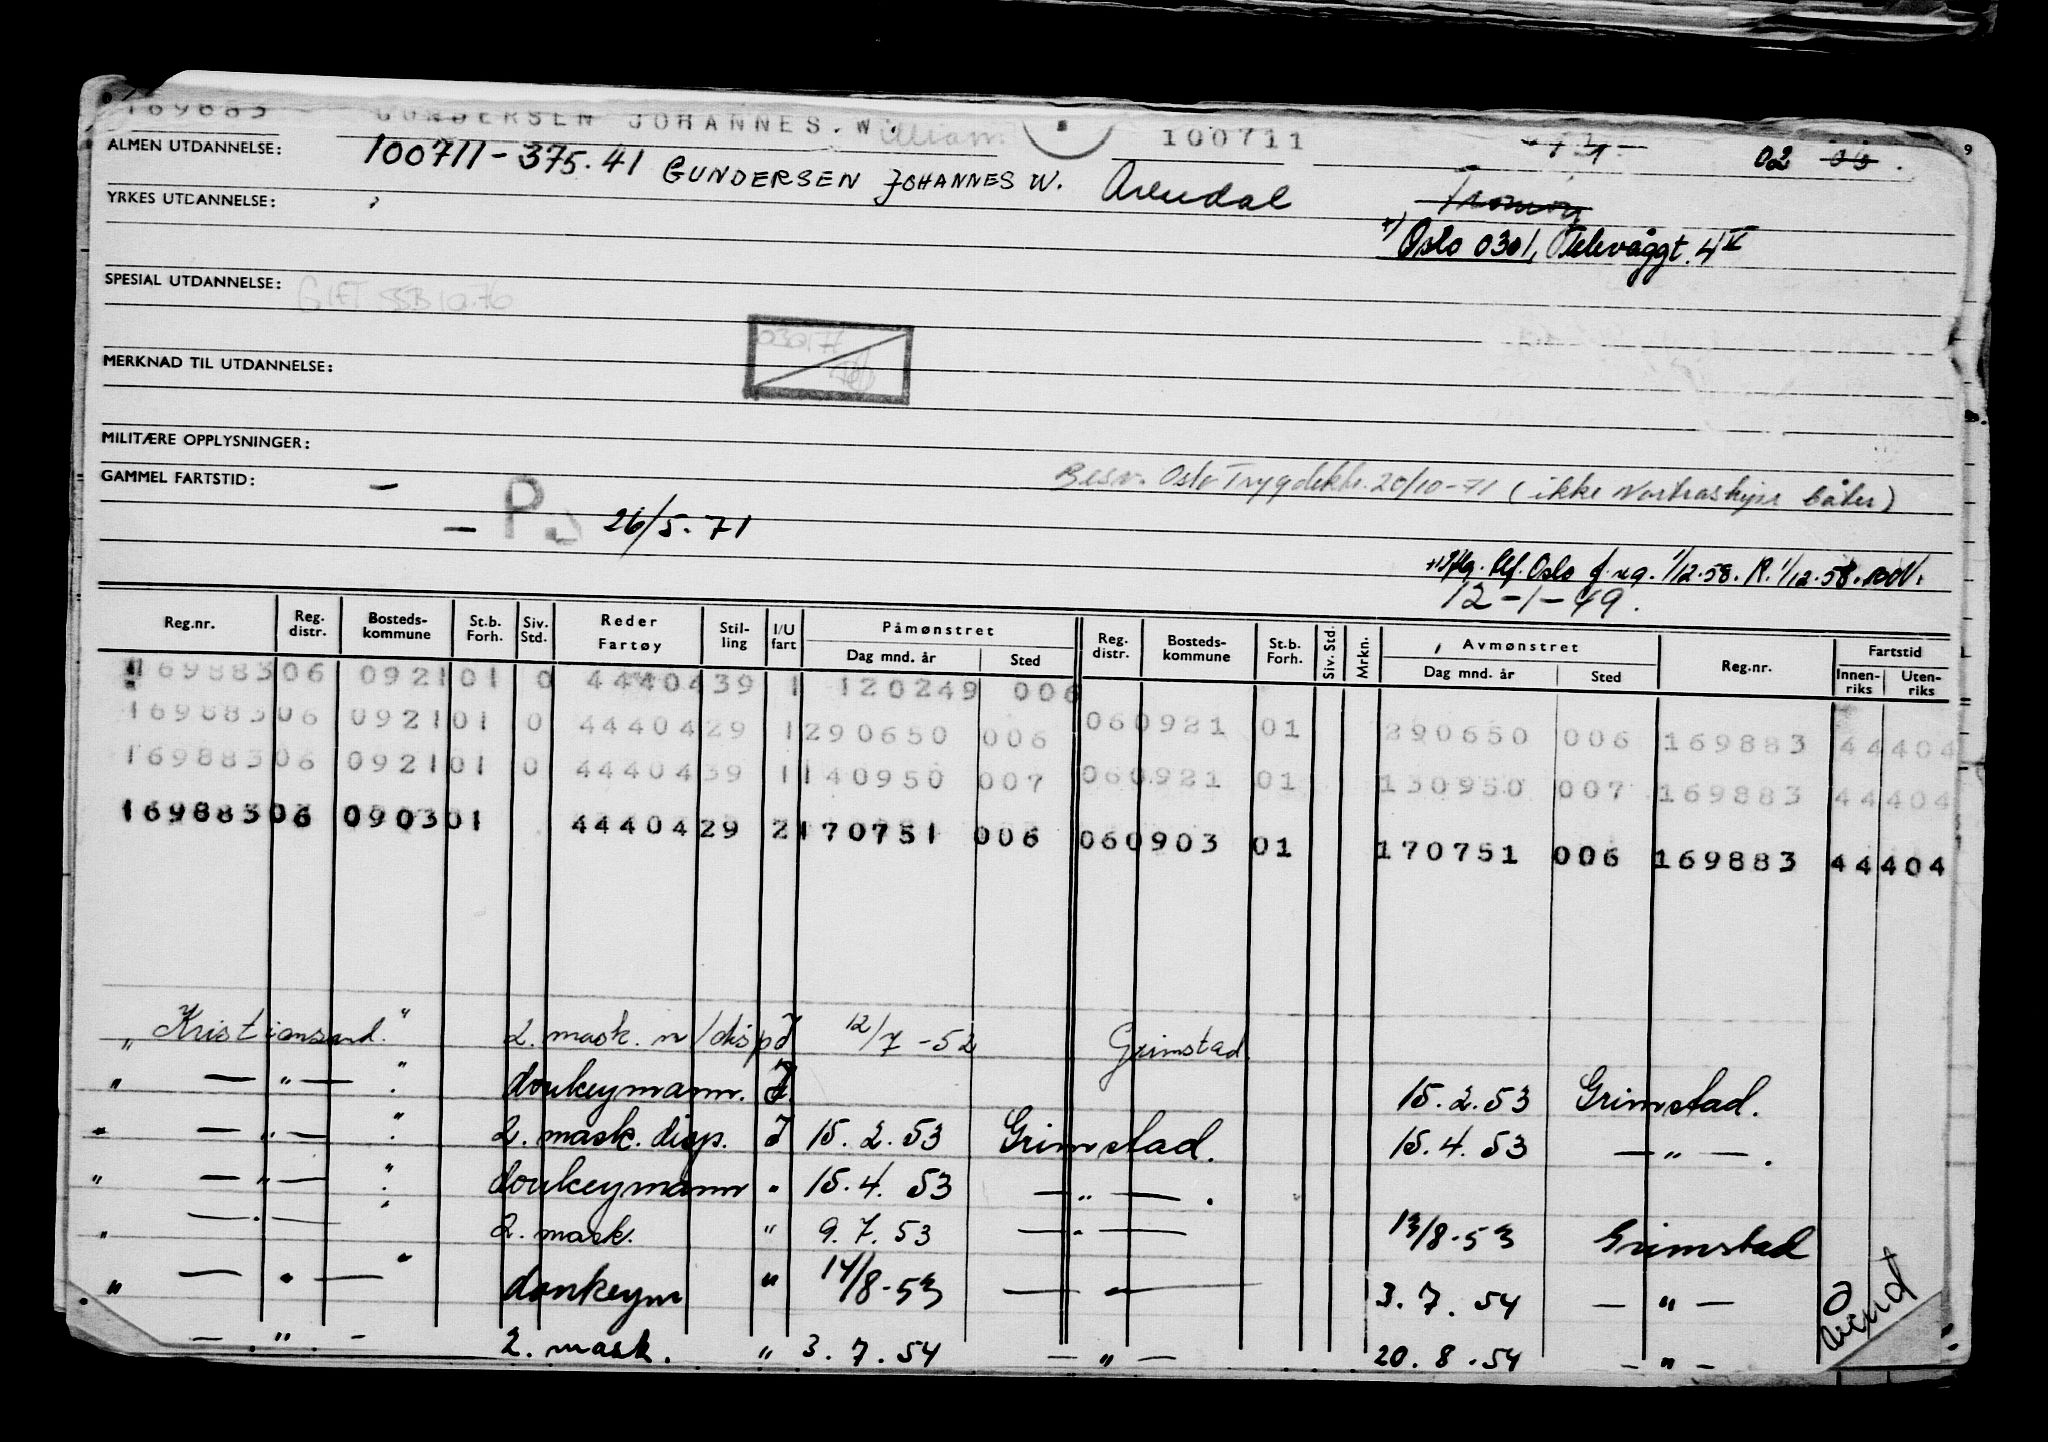 169883 GUNDERSEN JOHANNES.W. illiam 100711
ALMEN UTDANNELSE: 100711-375.41 GUNDERSEN JOHANNES W. Arendal 02 03
YRKES UTDANNELSE: Tromøy
Oslo 0301, Televåggt. 4 V
SPESIAL UTDANNELSE: GIFT SSB 10.76
MERKNAD TIL UTDANNELSE:
MILITÆRE OPPLYSNINGER:
GAMMEL FARTSTID: — Besv. Oslo Trygdekt. 20/10-71 (ikke Nortraships båter)
— P. 26/5.71
Oslo 1/12.58. R. 1/12.58.
12-1-49.
Reg.nr. Reg. distr. Bosteds- kommune St.b. Forh. Siv. Std. Reder Fartøy Stil- ling I/U fart Påmønstret Dag mnd. år Sted Reg. distr. Bosteds- kommune St.b. Forh. Siv. Std. Mrkn. Avmønstret Dag mnd. år Sted Reg.nr. Fartstid Innen- riks Uten- riks
169883 06 0921 01 0 44404 39 1 120249 006
169883 06 0921 01 0 44404 29 1 290650 006 06 0921 01 290650 006 169883 44404
169883 06 0921 01 0 44404 39 1 140950 007 06 0921 01 130950 007 169883 44404
169883 06 0903 01 44404 29 2 170751 006 06 0903 01 170751 006 169883 44404
" Kristiansand. " 2. mask. m/disp I 12/7-52 Grimstad.
" — " — " donkeymann. I 15.2.53 Grimstad.
" — " — " 2. mask. disp. I 15.2.53 Grimstad. 15.4.53 — " —.
" — " — " donkeymann " 15.4.53 — " —.
" — " — " 2. mask. " 9.7.53 — " — 13/8-53 Grimstad
" — " — " donkeym " 14/8-53 — " — 3.7.54 — " —
— " — 2. mask. " 3.7.54 — " — 20.8.54 — " —
vend